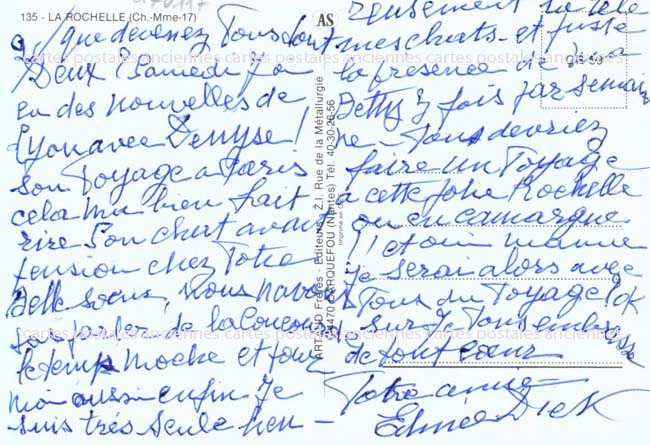 135 - LA ROCHELLE (Ch.-Mme-17)
que devenez Vous dont
Deux ? Samedi J'ai
eu des nouvelles de
Lyon avec Denyse !
son Voyage a Paris
cela m'a bien fait
rire Son chat avait
tension chez Votre
Belle soeur, Vous n'avez
pas parler de la Concou
le temp moche et pour
moi aussi enfin Je
suis très seule heu -
reusement la télé
mes chats - et juste
la présence de
Betty 3 fois par semai
ne - Vous devriez
faire un Voyage
a cette jolie Rochelle
ou en camargue
!! et oui
Je serai alors avec
Vous du Voyage OK
sur ? Vous embrasse
de tout coeur
Votre amie -
Edmée Dick
AS
ARTAUD Frères - Editeurs - Z.I. Rue de la Métallurgie
44470 CARQUEFOU (Nantes) Tél. 40-30-26-56
Imprimé en
cartes postales anciennes cartes postales anciennes cartes postales anciennes
cartes postales anciennes cartes postales anciennes cartes postales anciennes